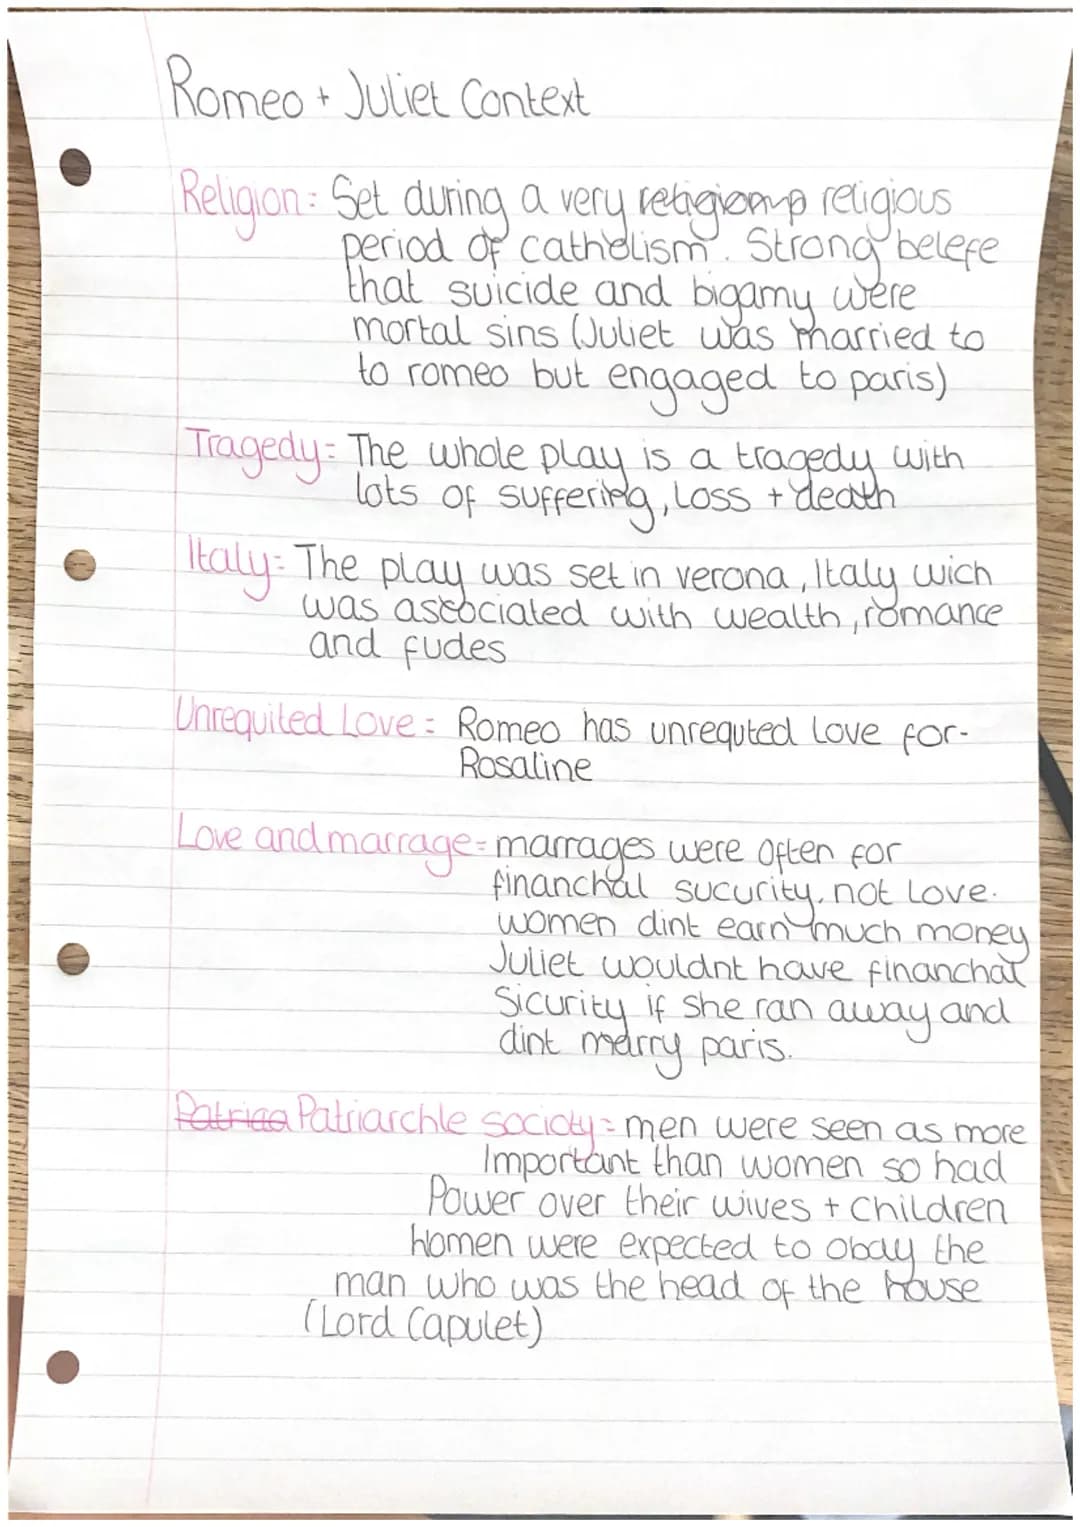 Romeo + Juliet Context
Religion: Set during a very religious
period of catholism. Strong belefe
that suicide and bigamy were
mortal sins (Juliet was married to
to romeo but engaged to paris)
Tragedy= The whole play is a tragedy with
lots of suffering, Loss + death
Italy= The play was set in verona, Italy wich
was associated with wealth, romance
and fudes
Unrequited Love = Romeo has unrequted love for-
Rosaline
Love and marrage= marrages were often for
financhal sucurity, not Love.
women dint earn much money
Juliet wouldnt have financhal
Sicurity if she ran away and
dint marry paris.
Patriaa Patriarchle socioty= men were seen as more
Important than women so had
Power over their wives + Children
Women were expected to obay the
man who was the head of the house
(Lord Capulet)